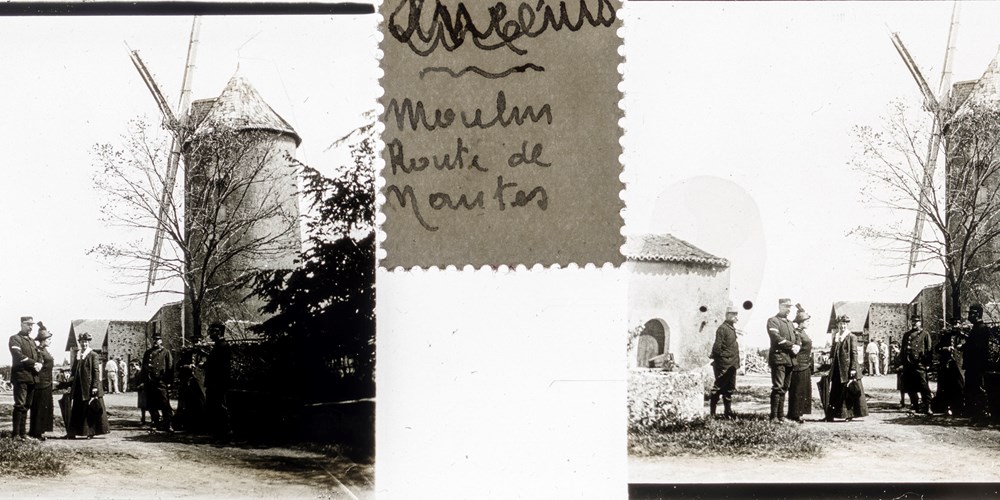 Ancenis
Moulin
Route de
Nantes